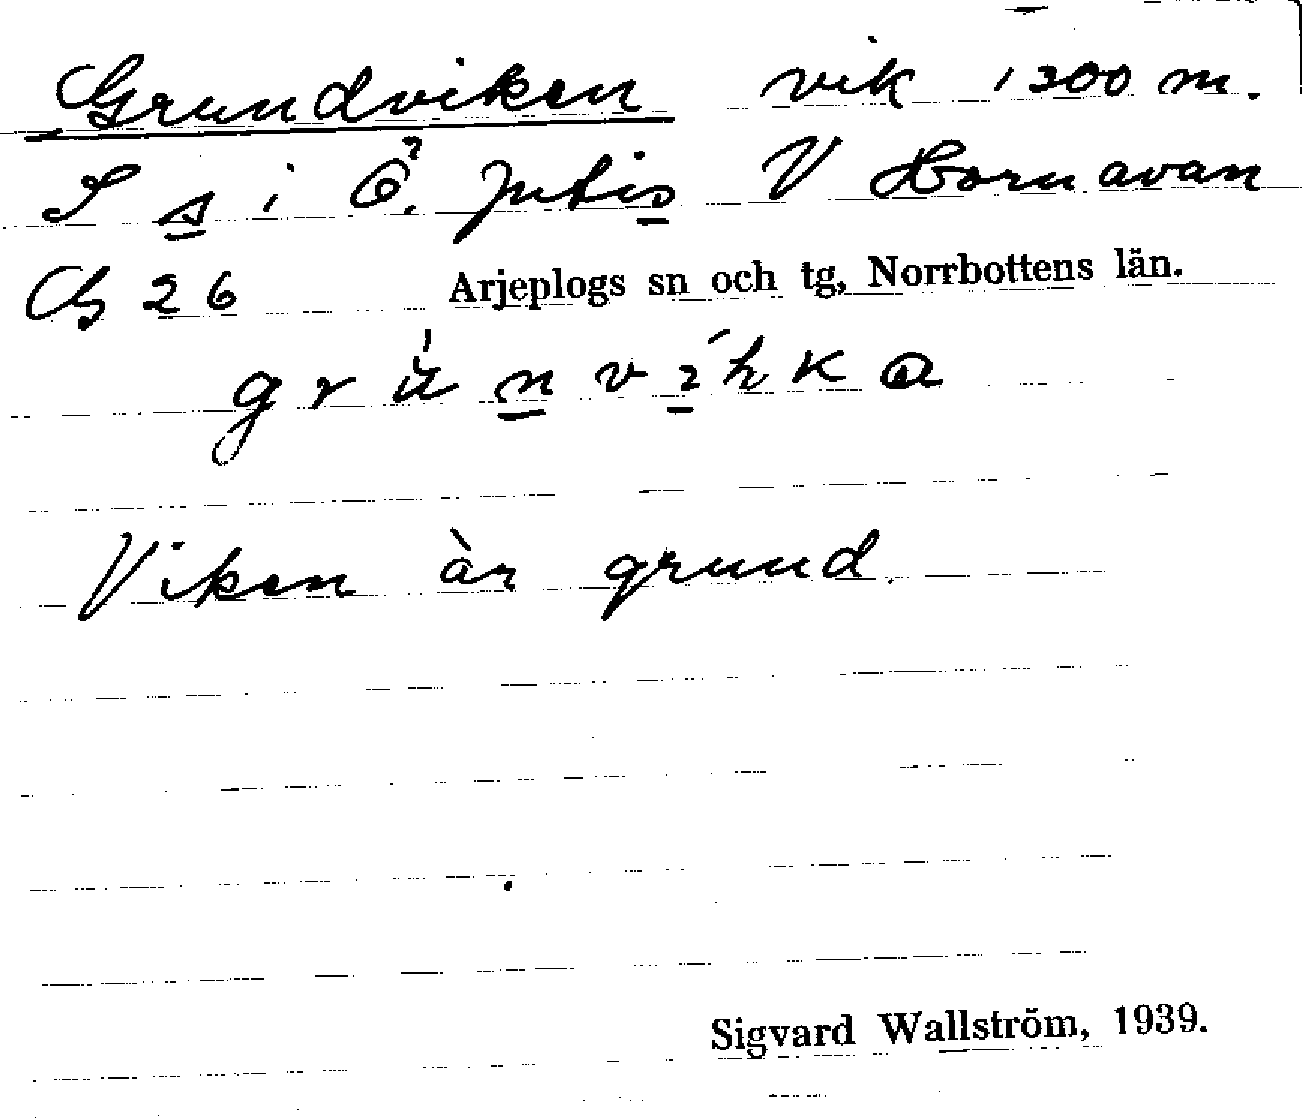 Grundviken vik 1300 m.
S s i Ö. Jutis V Hornavan
Cb 26 Arjeplogs sn och tg, Norrbottens län.
Viken är grund.
Sigvard Wallström, 1939.